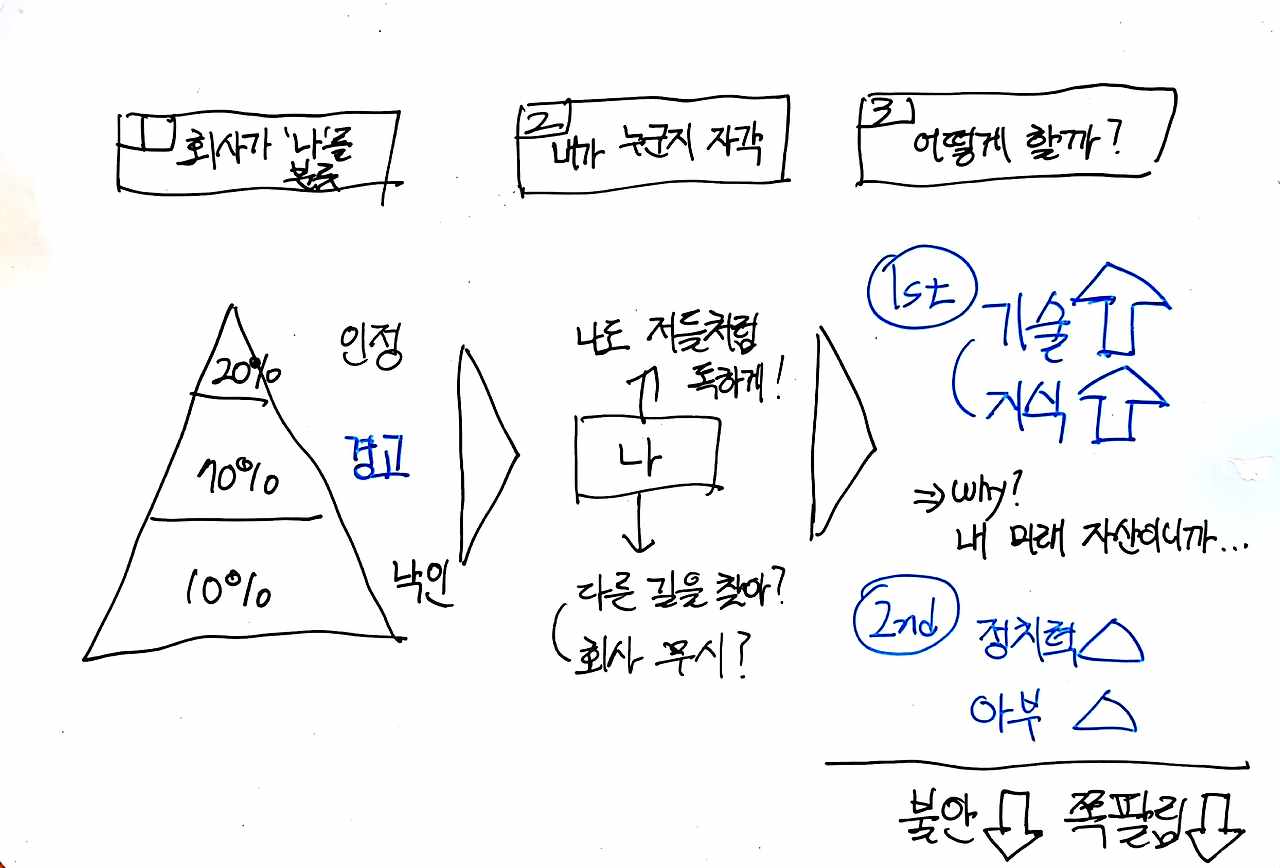 1 회사가 '나'를
분류
2 내가 누군지 자각
3 어떻게 할까?
20% 인정
70% 경고
10% 낙인
나도 저들처럼
독하게!
나
다른 길을 찾아?
회사 무시?
1st 기술
지식
⇒ why?
내 미래 자산이니까...
2nd 정치력
아부
불안 쪽팔림